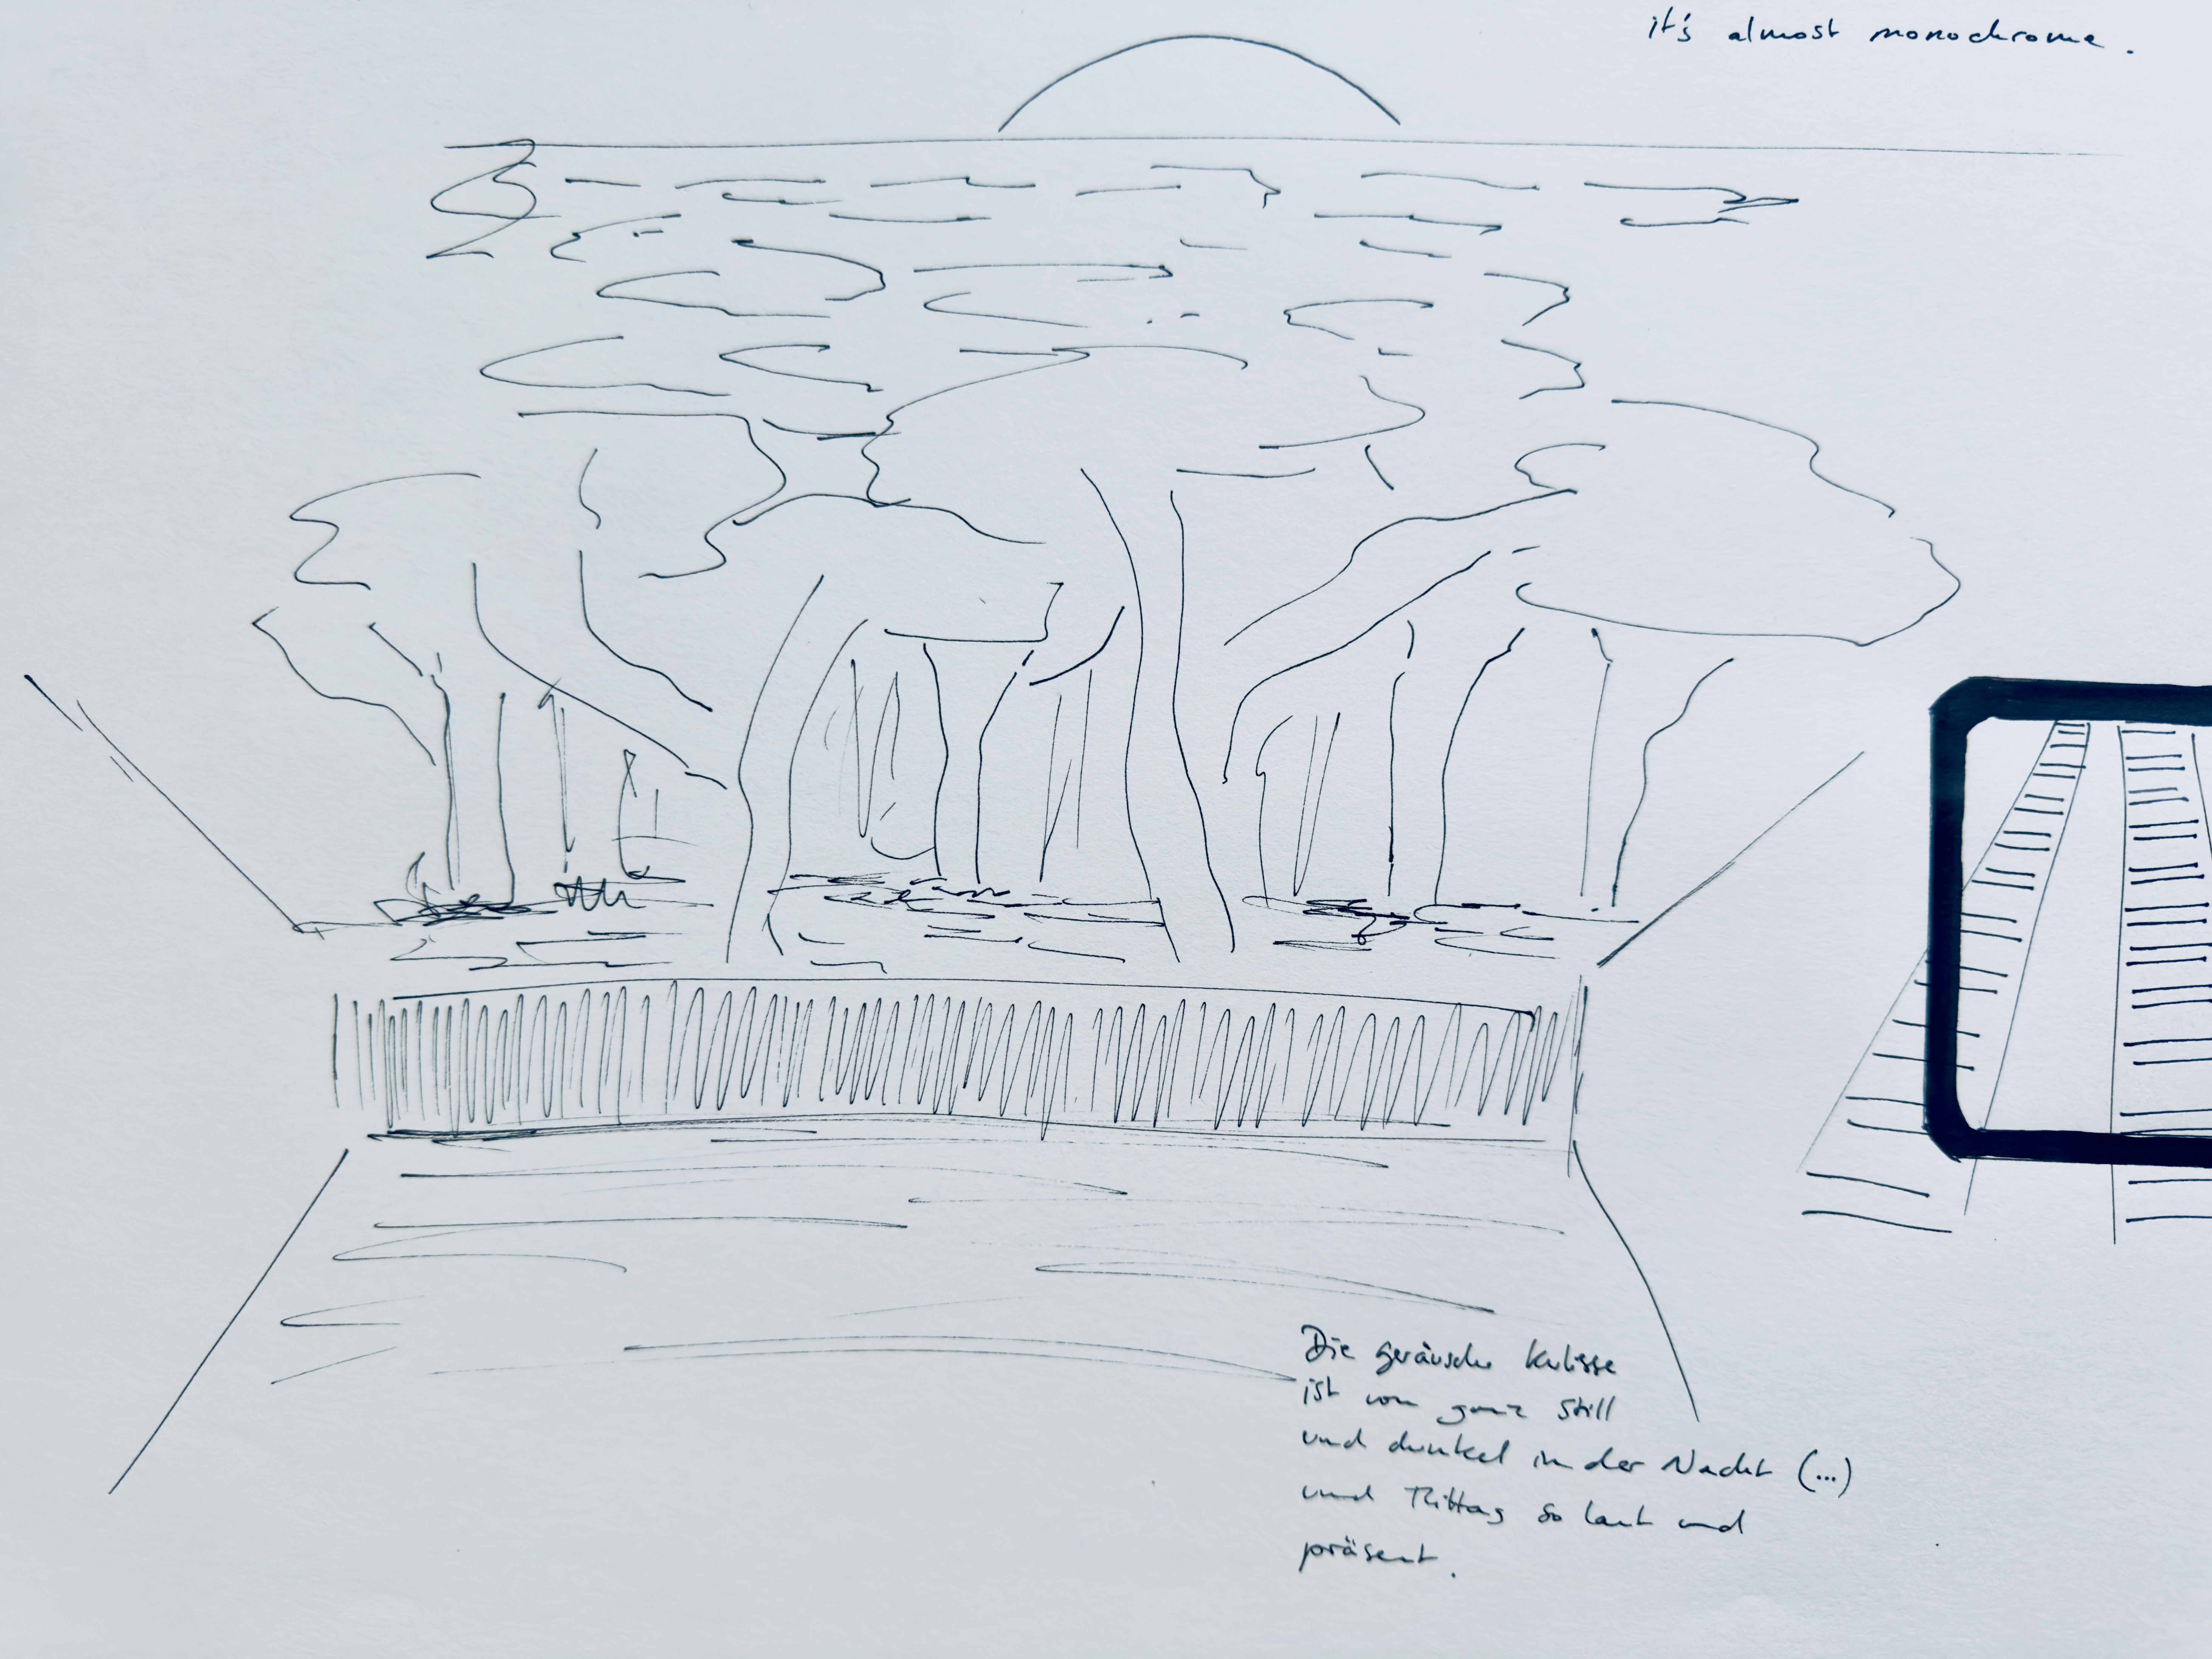 it's almost monochrome.
Die geräusche Kulisse
ist von ganz still
und dunkel in der Nacht (...)
und Mittag so laut und
präsent.